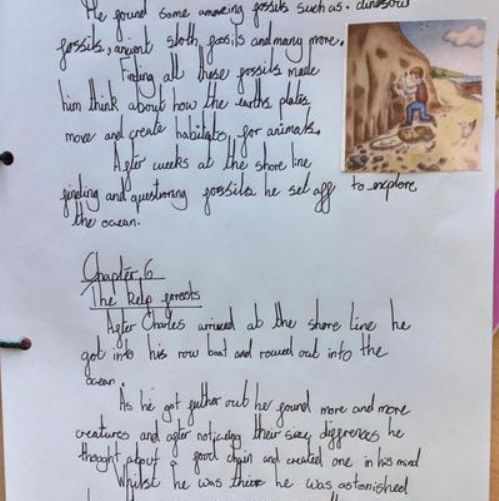 He found some amazing fossils such as. dinosour
fossils, ancient sloth fossils and many more.
Finding all these fossils made
him think about how the earths plates
move and create habitats for animals.
After weeks at the shore line
finding and questioning fossils he set off to explore
the ocean.
Chapter 6
The kelp forests
After Charles arrived at the shore line he
got into his row boat and rowed out into the
ocean.
As he got futher out he found more and more
creatures and after noticing their size diffrences he
thought about a food chain and created one in his mind
Whilst he was there he was astonished